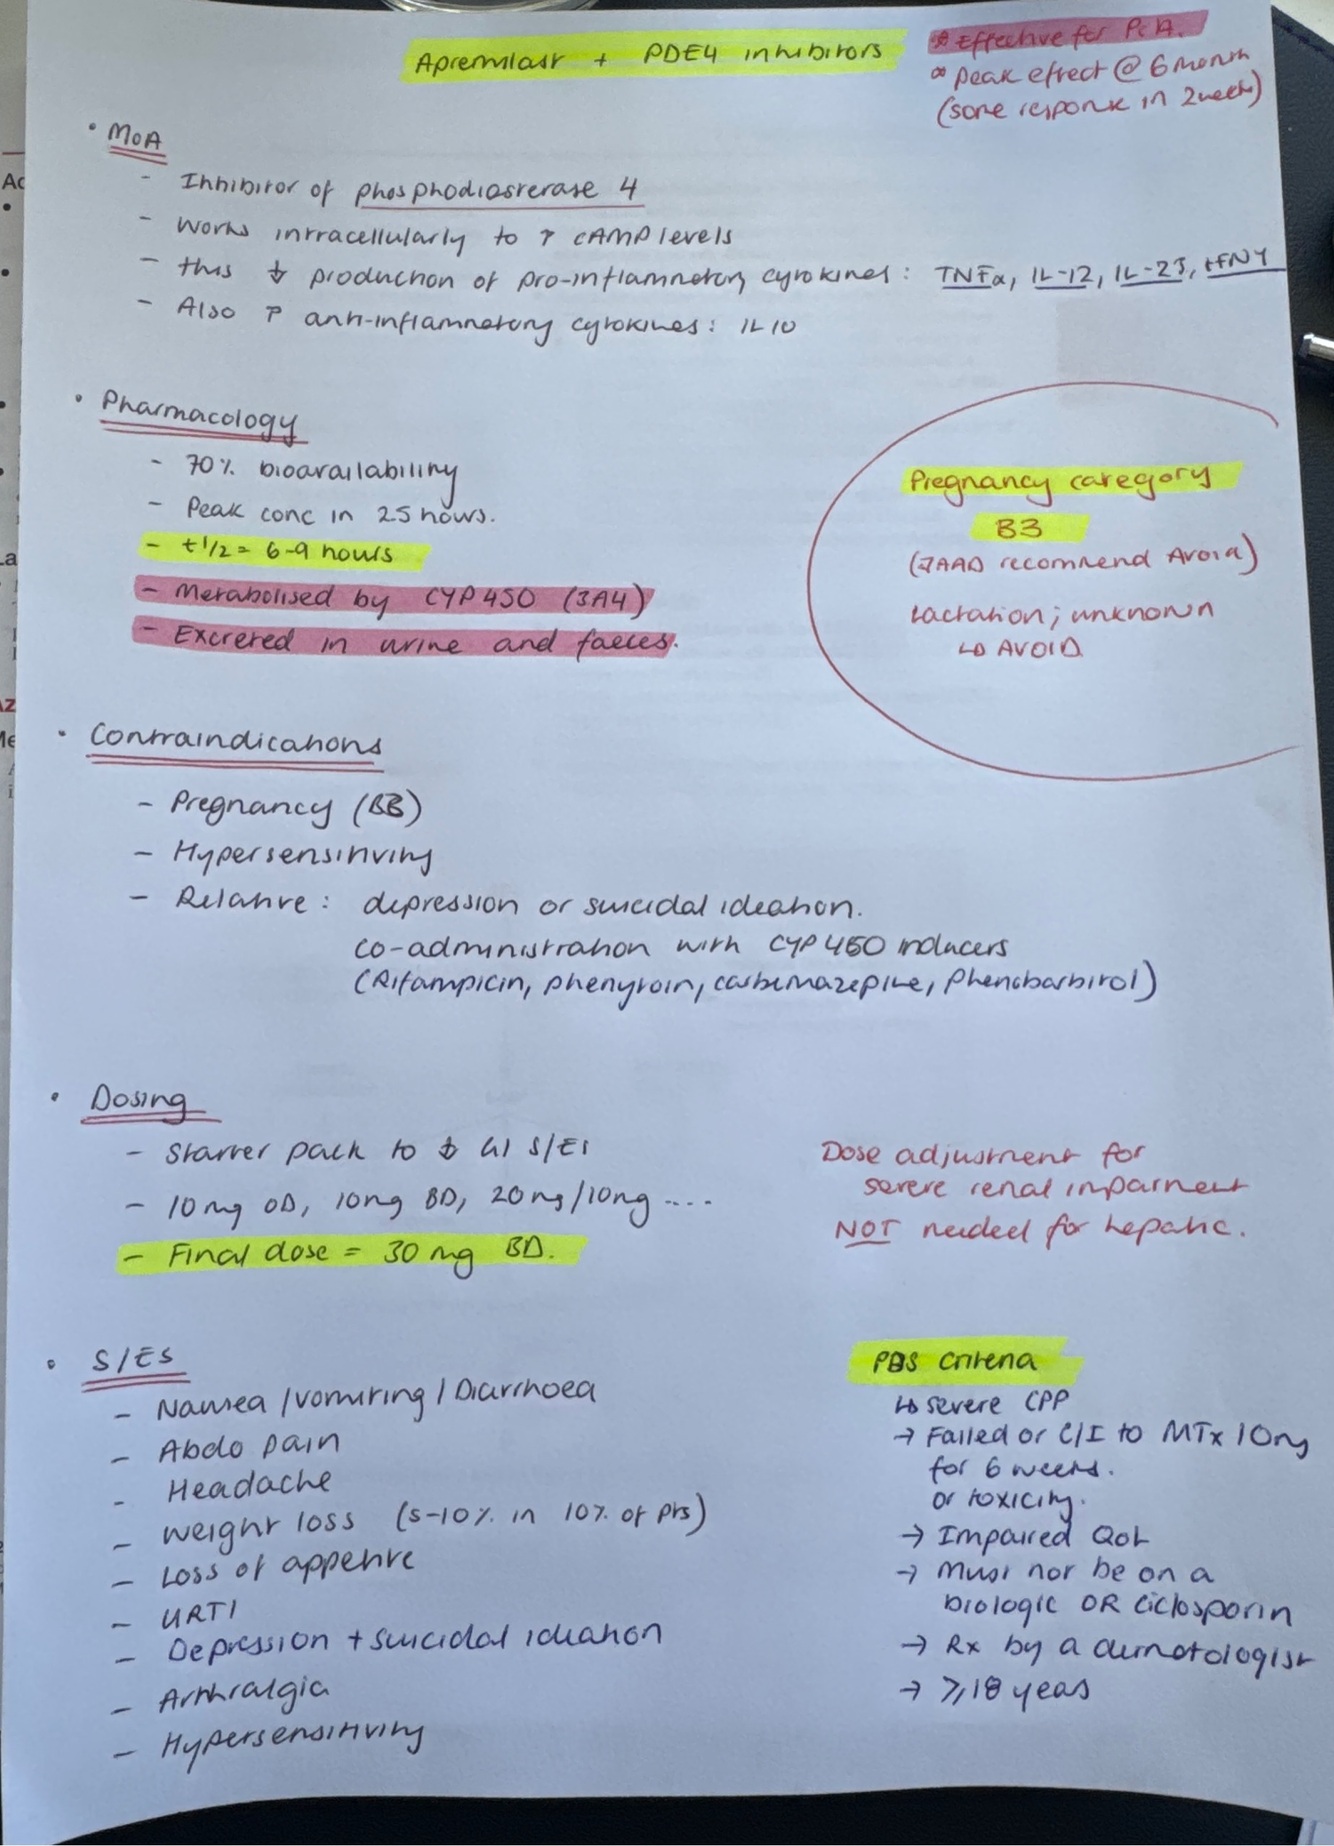 Apremilast + PDE4 inhibitors
* Effective for PsA.
∞ peak effect @ 6 month
(some response in 2 weeks)
• MoA
- Inhibitor of phosphodiasterase 4
- Works intracellularly to ↑ cAMP levels
- this ↓ production of pro-inflammatory cytokines: TNFα, IL-12, IL-23, IFNγ
- Also ↑ anti-inflammatory cytokines: IL10
• Pharmacology
- 70% bioavailability
- Peak conc in 2.5 hours.
- t1/2 = 6-9 hours
- Metabolised by CYP450 (3A4)
- Excreted in urine and faeces.
Pregnancy category
B3
(JAAD recommend Avoid)
Lactation; unknown
↳ AVOID
• Contraindications
- Pregnancy (B3)
- Hypersensitivity
- Relative: depression or suicidal ideation.
co-administration with CYP450 inducers
(Rifampicin, phenytoin, carbemazepine, Phenobarbitol)
• Dosing
- Starter pack to ↓ GI S/Es
- 10mg OD, 10mg BD, 20mg/10mg ....
- Final dose = 30mg BD.
Dose adjustment for
severe renal impairment
NOT needed for hepatic.
• S/ES
- Nausea / vomiting / Diarrhoea
- Abdo pain
- Headache
- Weight loss (5-10% in 10% of pts)
- Loss of appetite
- URTI
- Depression + suicidal ideation
- Arthralgia
- Hypersensitivity
PBS criteria
↳ severe CPP
→ Failed or C/I to MTx 10mg
for 6 weeks.
or toxicity.
→ Impaired QoL
→ Must not be on a
biologic OR ciclosporin
→ Rx by a dermatologist
→ ≥18 years